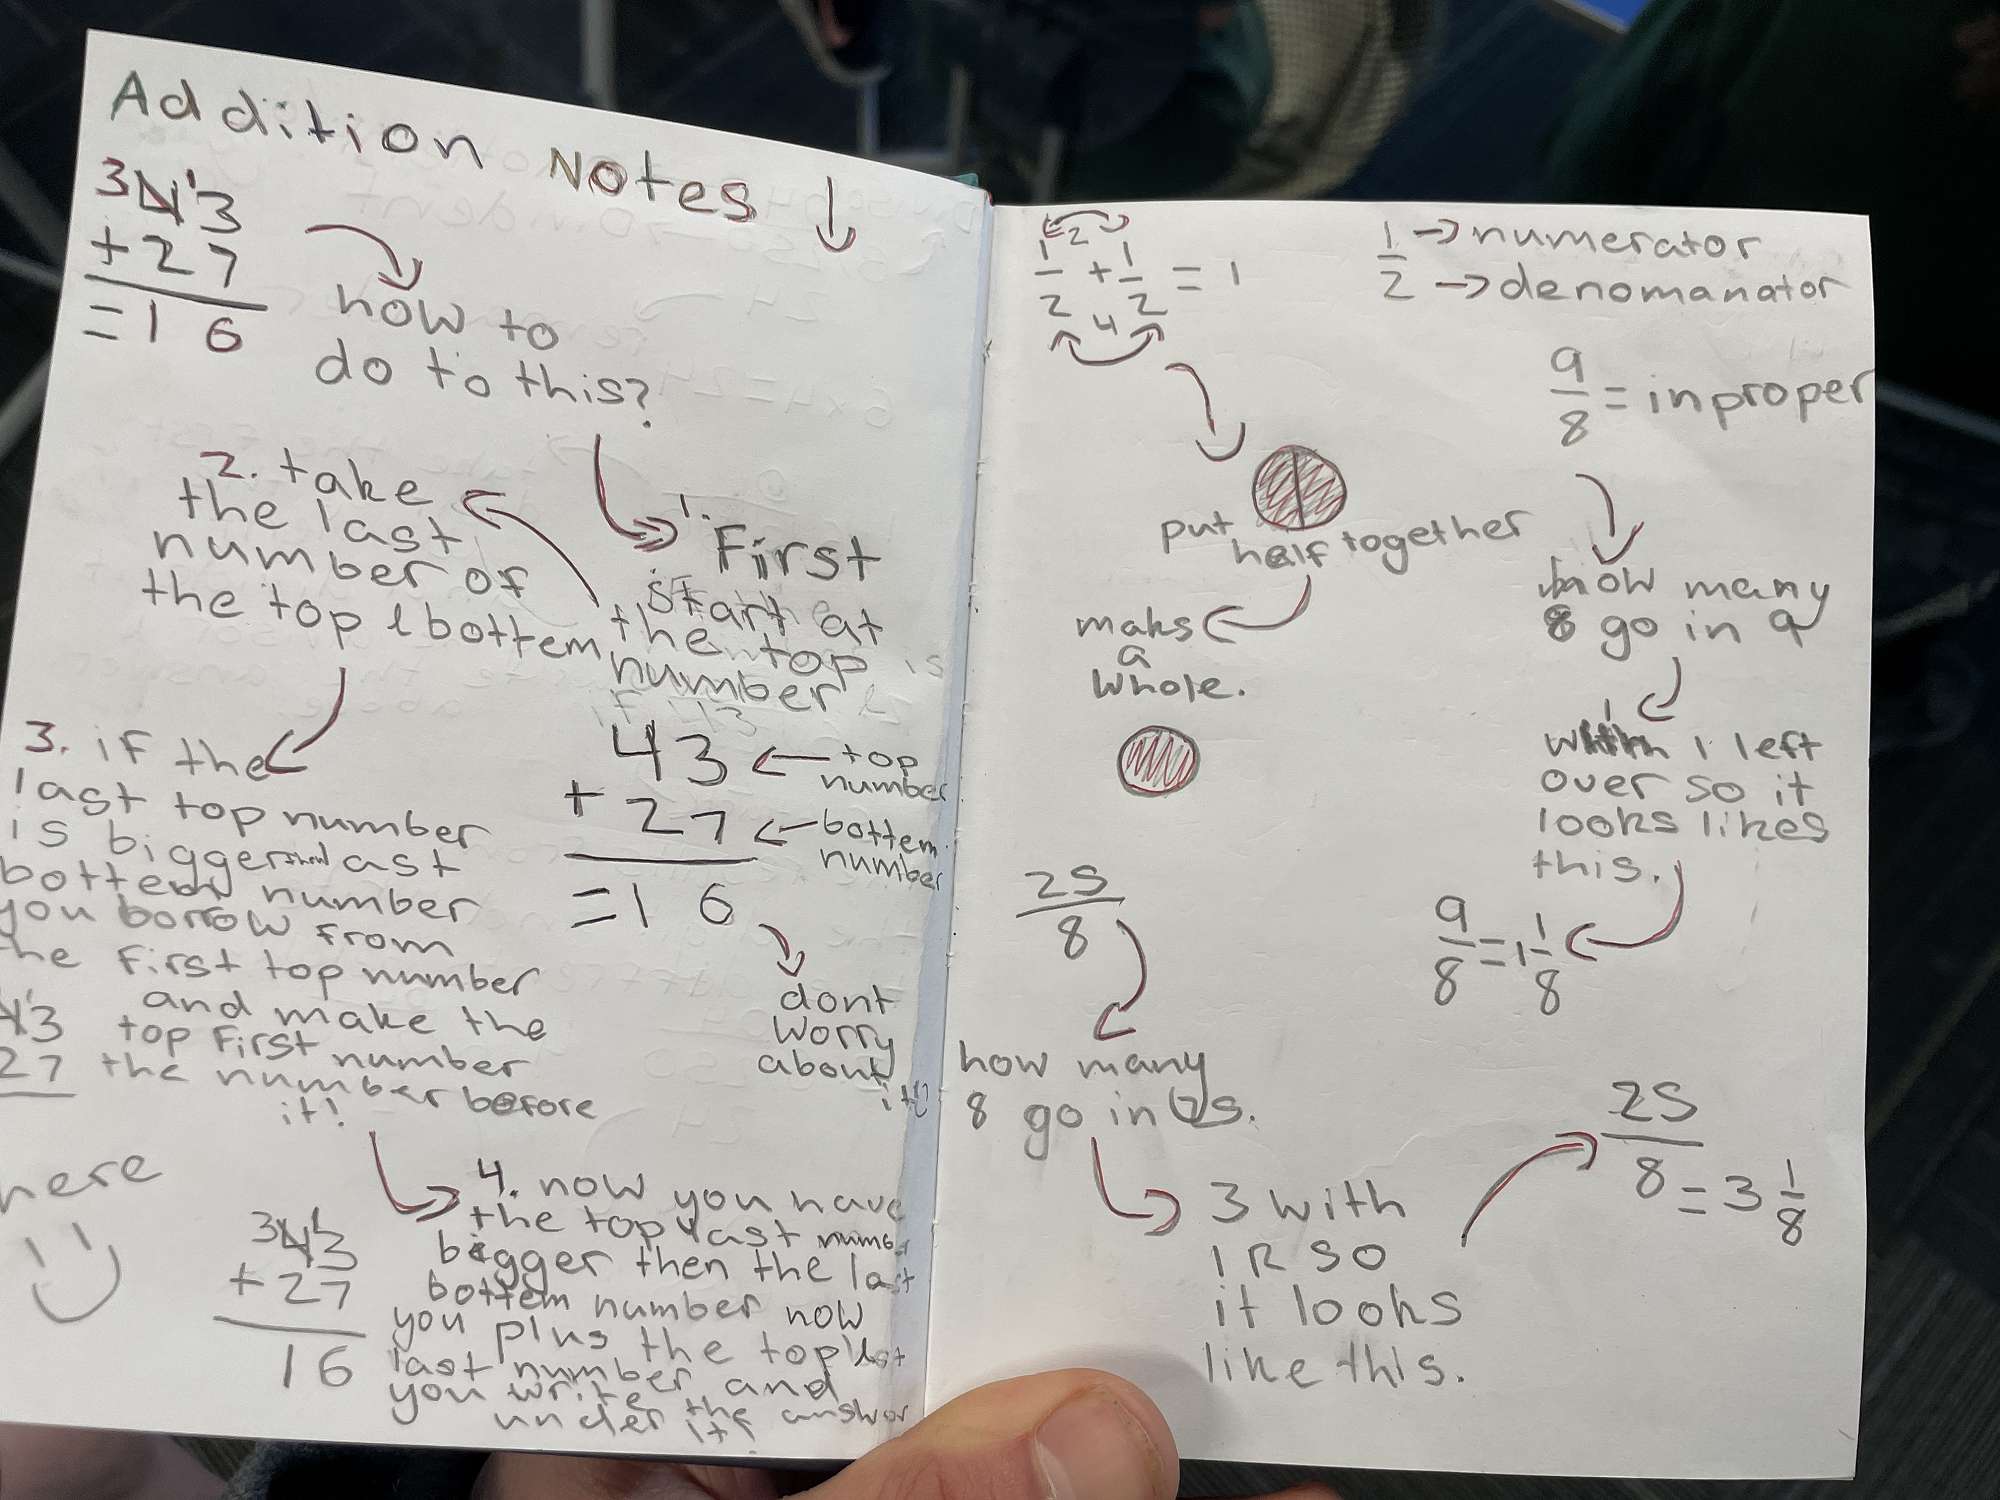 Addition Notes
3 4 1 3
+ 2 7
= 1 6
how to
do to this?
1.
First
start at
the top
number
2. take
the last
number of
the top & bottem
43 ← top
number
+ 27 ← bottem
number
= 1 6
dont
worry
about
it!
3. if the
last top number
is bigger then last
bottem number
you borrow from
the first top number
and make the
top first number
the number before
it!
43
27
here
4. now you have
the top last
bigger then the last
bottem number now
you plus the top
last number and
you write the answer
under it!
3 4 1 3
+ 27
16
2
1/2 + 1/2 = 1
4
put half together
maks
a
whole.
1 → numerator
2 → denomanator
9/8 = inproper
how many
8 go in 9
1
with 1 left
over so it
looks likes
this.
9/8 = 1 1/8
25/8
how many
8 go in 25.
3 with
1R so
it looks
like this.
25/8 = 3 1/8